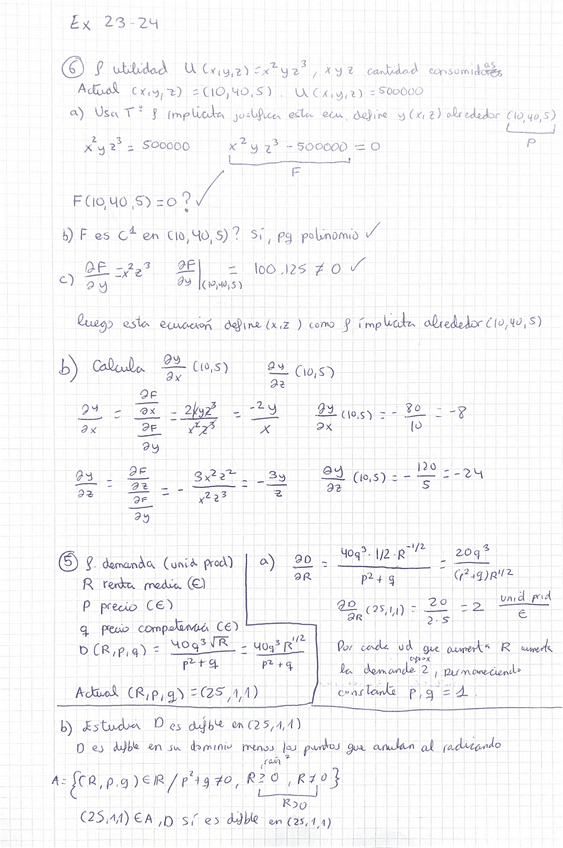 Ex 23-24
⑥ f utilidad U(x,y,z)=x²yz³, xyz cantidad consumidas
Actual (x,y,z)=(10,40,5). U(x,y,z)=500000
a) Usa Tª f implícita justifica esta ecu. define y(x,z) alrededor (10,40,5)
P
x²yz³ = 500000 x²yz³ - 500000 = 0
F
F(10,40,5)=0? ✓
b) F es C¹ en (10,40,5)? Sí, pq polinomio ✓
c) ∂F/∂y = x²z³ ∂F/∂y |(10,40,5) = 100·125 ≠ 0 ✓
luego esta ecuación define (x,z) como f implícita alrededor (10,40,5)
b) Calcula ∂y/∂x (10,5) ∂y/∂z (10,5)
∂y/∂x = ∂F/∂x / ∂F/∂y = 2xyz³/x²z³ = -2y/x ∂y/∂x (10,5) = -80/10 = -8
∂y/∂z = ∂F/∂z / ∂F/∂y = - 3x²z²/x²z³ = -3y/z ∂y/∂z (10,5) = -120/5 = -24
⑤ f. demanda (unid prod)
R renta media (€)
P precio (€)
q precio competencia (€)
D(R,p,q) = 40q³√R/p²+q = 40q³R^1/2/p²+q
Actual (R,p,q)=(25,1,1)
a) ∂D/∂R = 40q³·1/2·R^-1/2/p²+q = 20q³/(p²+q)R^1/2
∂D/∂R (25,1,1) = 20/2·5 = 2 unid prod/€
Por cada ud que aumenta R aumenta
la demanda aprox 2, permaneciendo
constante p,q = 1.
b) Estudia D es difble en (25,1,1)
D es difble en su dominio menos los puntos que anulan al radicando
raíz
A={(R,p,q)∈R / p²+q≠0, R≥0, R≠0}
R>0
(25,1,1)∈A, D sí es difble en (25,1,1)